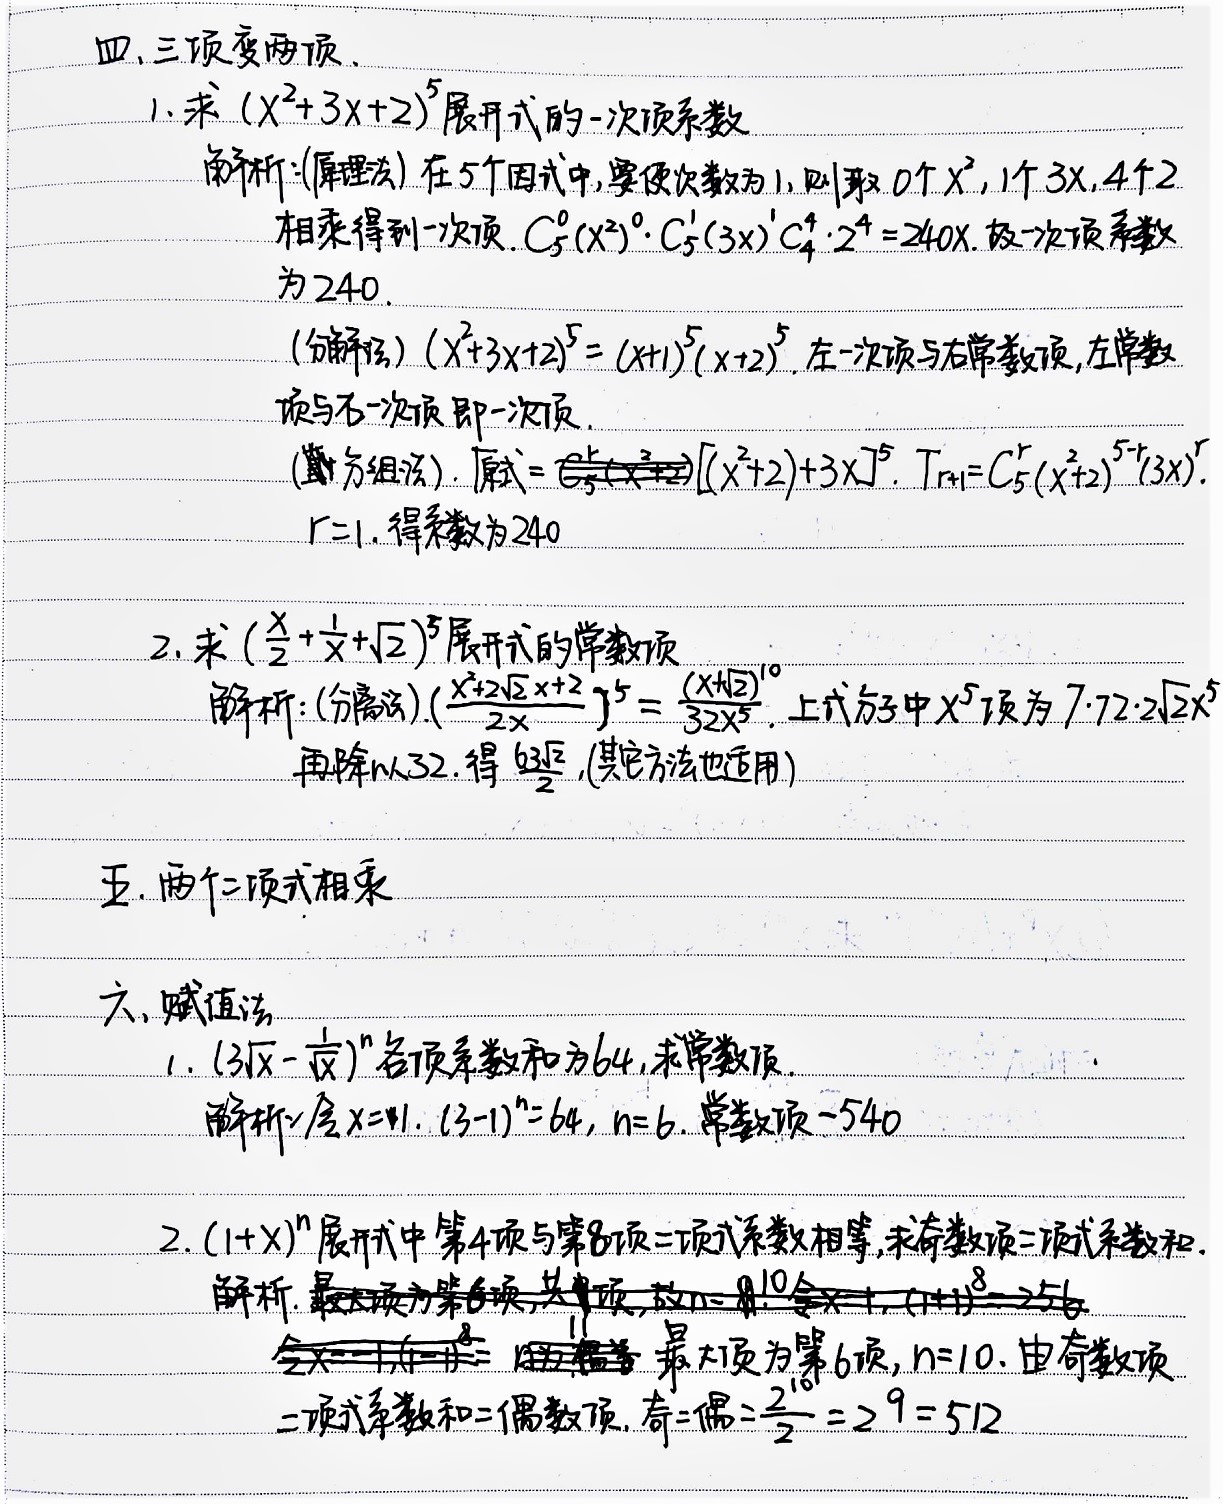 四、三项变两项.
1、求 (x²+3x+2)⁵展开式的一次项系数
解析:(原理法) 在5个因式中,要使次数为1,则取 0个x²,1个3x,4个2
相乘得到一次项. C₅⁰(x²)⁰·C₅¹(3x)¹C₄⁴·2⁴=240x. 故一次项系数
为240.
(分解法) (x²+3x+2)⁵=(x+1)⁵(x+2)⁵. 左一次项与右常数项,左常数
项与右一次项 即一次项.
(分组法). 原式=[(x²+2)+3x]⁵. Tr+1=C₅ʳ(x²+2)⁵⁻ʳ(3x)ʳ.
r=1. 得系数为240
2. 求 (x/2+1/x+√2)⁵展开式的常数项
解析:(分离法).((x²+2√2x+2)/2x)⁵=(x+√2)¹⁰/32x⁵. 上式分子中x⁵项为 7·72·2√2x⁵
再除以32.得 63√2/2.(其它方法也适用)
五. 两个二项式相乘
六、赋值法
1. (3√x-1/√x)ⁿ 各项系数和为64,求常数项.
解析:令x=1. (3-1)ⁿ=64, n=6. 常数项-540
2. (1+x)ⁿ展开式中第4项与第8项二项式系数相等,求奇数项二项式系数和.
解析. 最大项为第6项,共11项,故n=10. 令x=1, (1+1)⁸=256
令x=-1,(1-1)⁸= 最大项为第6项, n=10. 由奇数项
二项式系数和=偶数项. 奇=偶=2¹⁰/2=2⁹=512